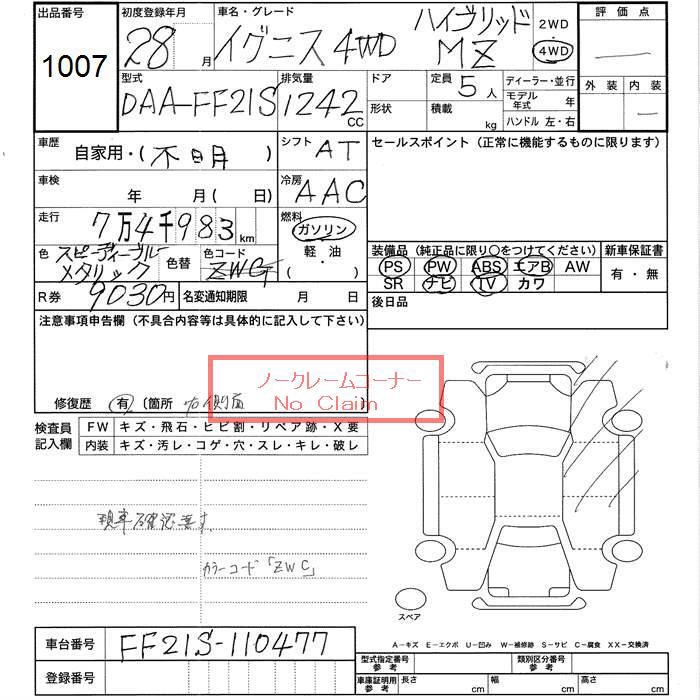 出品番号 初度登録年月 車名・グレード 評価点
1007 28 月 イグニス 4WD ハイブリッド MZ 2WD 4WD
外装 内装
型式 排気量 ドア 定員 5 人 ディーラー・並行
DAA-FF21S 1242 CC 形状 積載 kg モデル年式 年
ハンドル 左・右
車歴 自家用・(不明) シフト AT セールスポイント (正常に機能するものに限ります)
車検 年 月 ( 日) 冷房 AAC
走行 7万4千983 km 燃料 ガソリン
軽・油
( )
色 スピーディーブルーメタリック 色替 色コード ZWG
装備品 (純正品に限り○をつけてください) 新車保証書
PS PW ABS エアB AW 有・無
SR ナビ TV カワ
R券 9030円 名変通知期限 月 日 後日品
注意事項申告欄 (不具合内容等は具体的に記入して下さい)
ノークレームコーナー
No Claim
修復歴 有 (箇所 右側面 )
検査員記入欄 FW キズ・飛石・ヒビ割・リペア跡・X要
内装 キズ・汚レ・コゲ・穴・スレ・キレ・破レ
現車確認要す
カラーコード「ZWC」
スペア
A-キズ E-エクボ U-凹み W-補修跡 S-サビ C-腐食 XX-交換済
車台番号 FF21S-110477
登録番号
型式指定番号参考 類別区分番号参考
車庫証明用参考 長さ cm 幅 cm 高さ cm